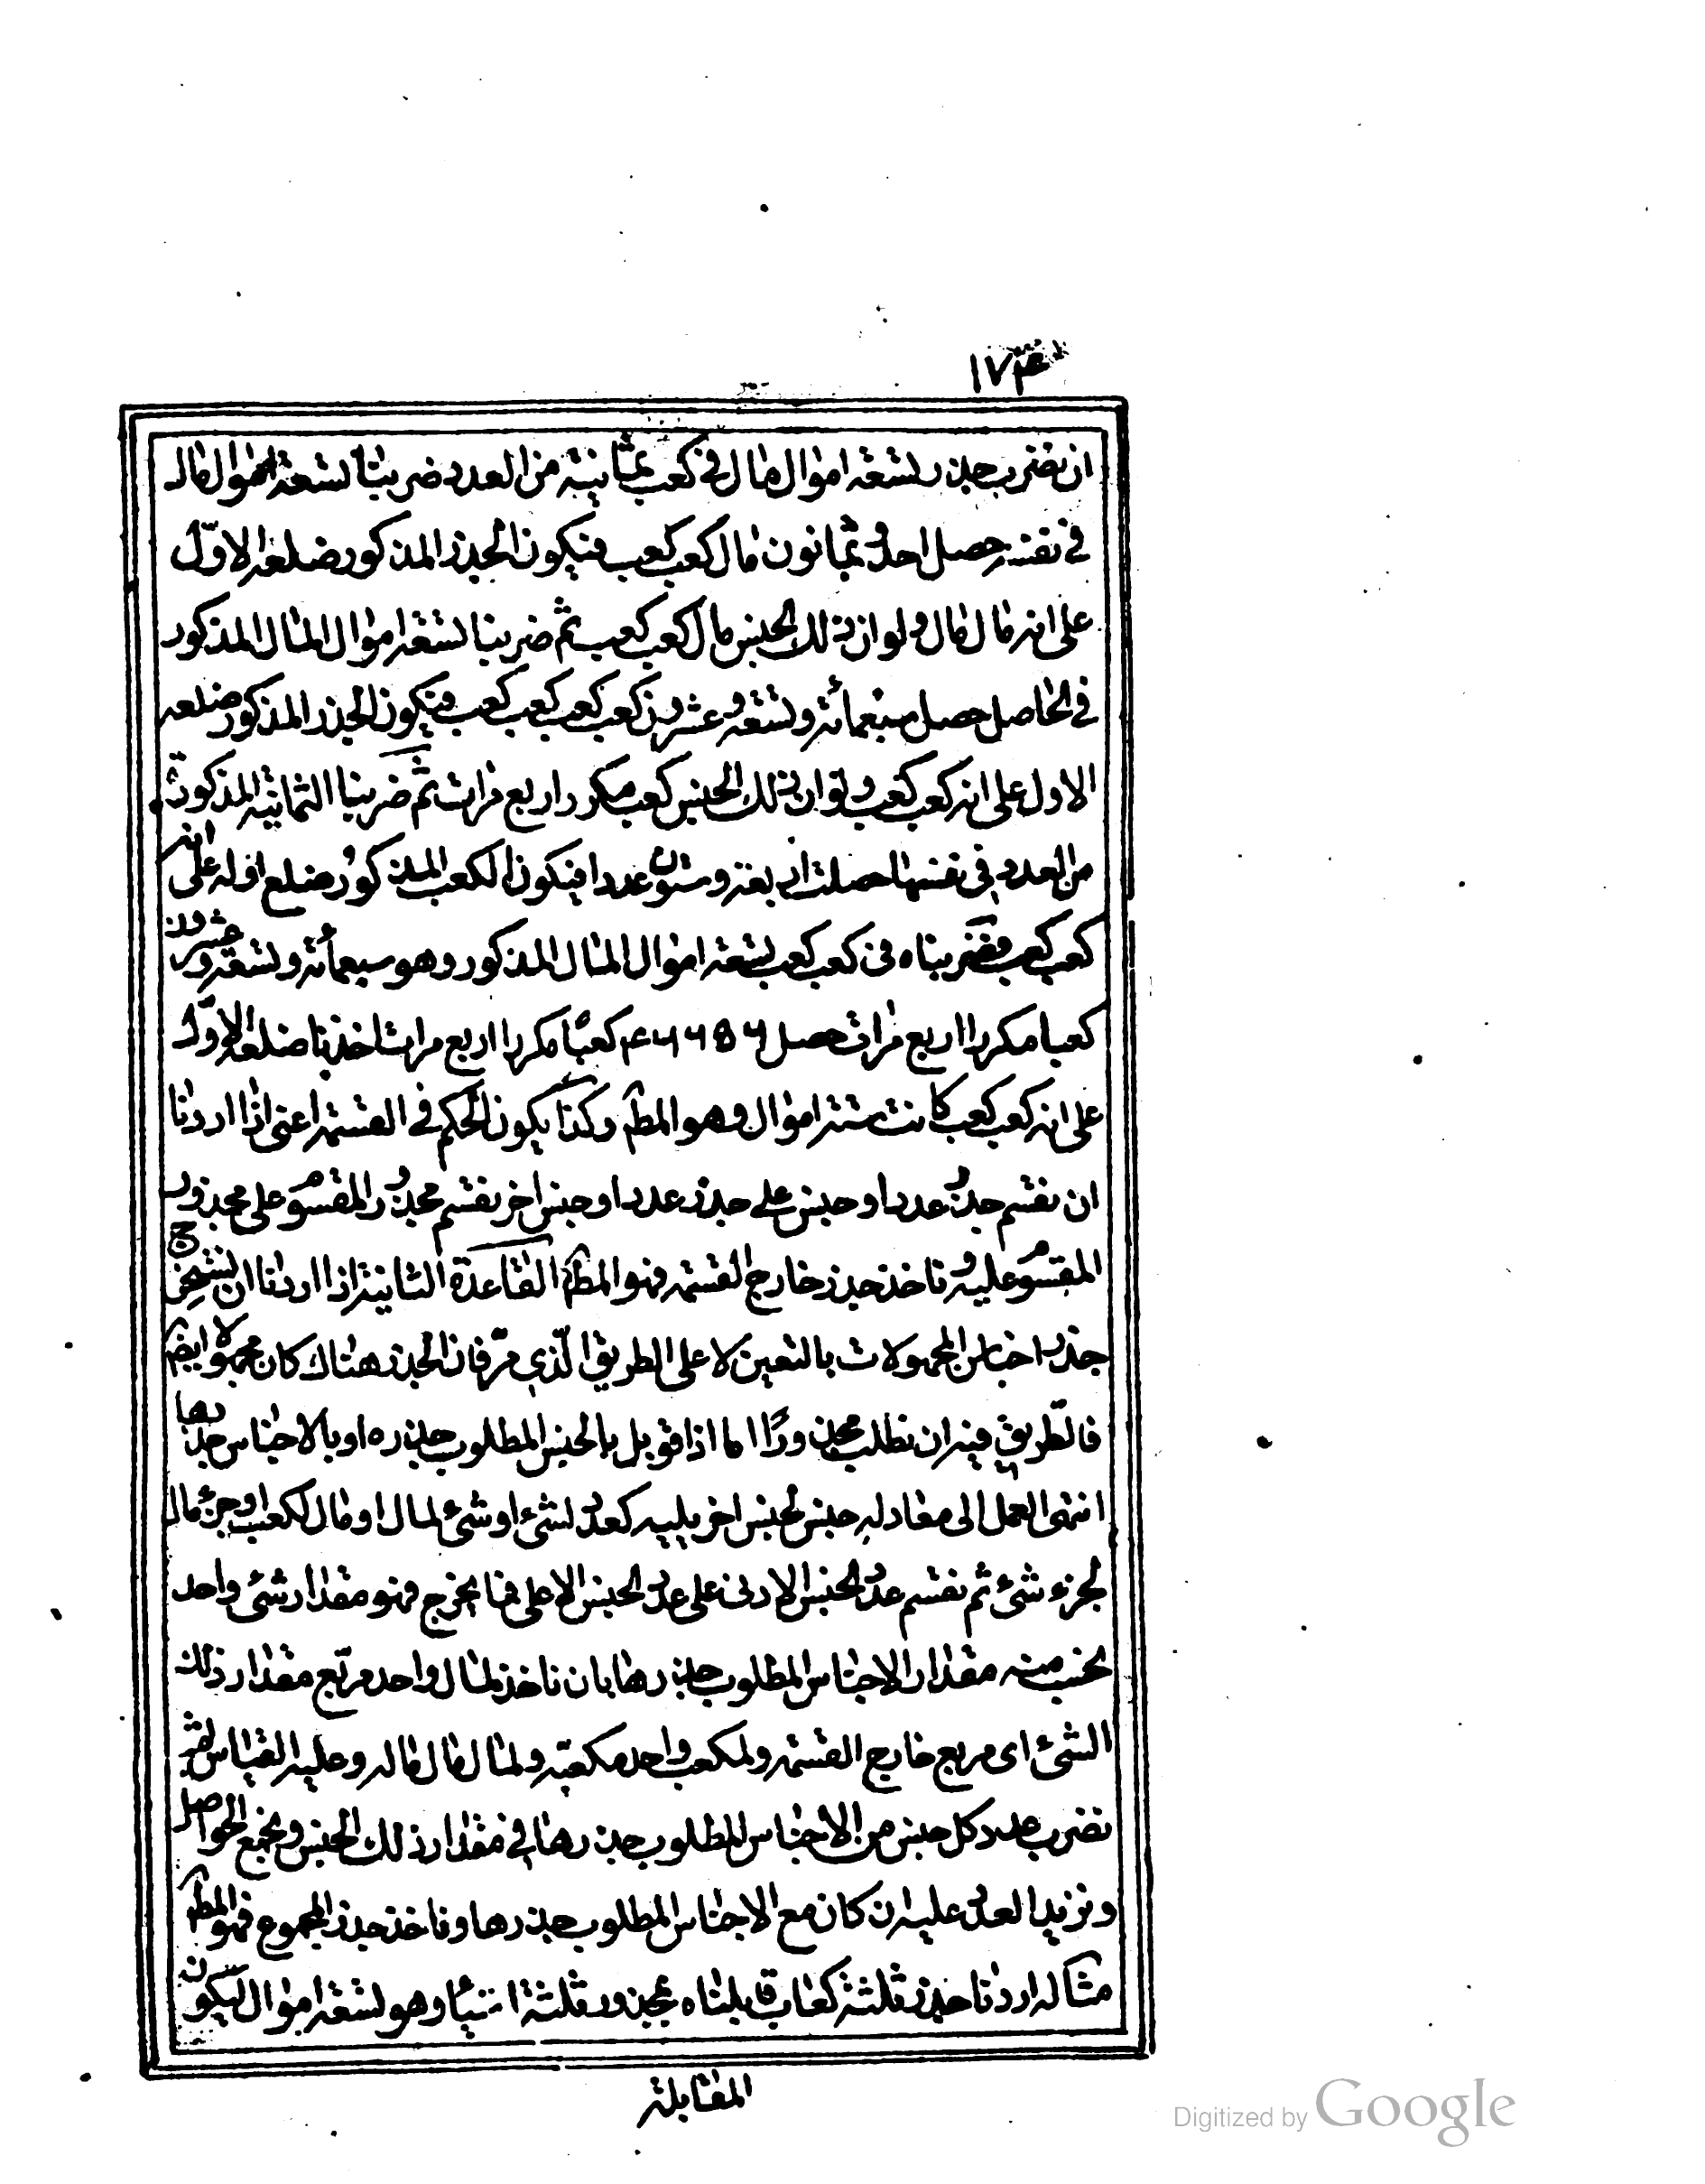 ١٧٤
ان نضرب جذر تسعة اموال مال في كعب ثمانية من العدد ضربنا تسعة اموال مال
في نفسه حصل احد وثمانون مال كعب كعب فيكون الجذر المذكور ضلعه الاول
على انه مال مال ولوازن ذلك الجنس مال كعب كعب ثم ضربنا تسعة اموال المال المذكور
في الحاصل حصل سبعمائة وتسعة وعشرين كعب كعب كعب كعب فيكون الجذر المذكور ضلعه
الاول على انه كعب كعب ولوازن ذلك الجنس كعب مكرر اربع مرات ثم ضربنا الثمانية المذكورة
من العدد في نفسها حصلت اربعة وستون عددا فيكون الكعب المذكور ضلع اوله على انه
كعب كعب فضربناه في كعب كعب تسعة اموال المال المذكور وهو سبعمائة وتسعة وعشرون
كعبا مكررا اربع مرات حصل ٤٦٦٥٦ كعبا مكررا اربع مرات اخذنا ضلعه الاول
على انه كعب كعب كانت ستة اموال وهو المط وكذا يكون الحكم في القسمة اعني اذا اردنا
ان نقسم جذر عدد او جنس على جذر عدد او جنس اخر نقسم مجذور المقسوم على مجذور
المقسوم عليه وناخذ جذر خارج القسمة فهو المط القاعدة الثانية اذا اردنا ان نستخرج
جذر اجناس المجهولات بالتعيين لا على الطريق الذي مر فان الجذر هناك كان مجهولا ايض
فالطريق فيه ان نطلب مجذورا اما اذا قوبل بالجنس المطلوب جذره او بالاجناس جذرها
انتهى العمل الى معادلة جنس لجنس اخر يليه كعدد لشئ او شئ لمال او مال لكعب او جزء مال
لجزء شئ ثم نقسم عدد الجنس الادنى على عدد الجنس الاعلى فما يخرج فهو مقدار شئ واحد
نحسب منه مقدار الاجناس المطلوب جذرها بان ناخذ لمال واحد مربع مقدار ذلك
الشئ اى مربع خارج القسمة ولكعب واحد مكعبه ولمال مال ماله وعليه القياس ثم
نضرب عدد كل جنس من الاجناس المطلوب جذرها في مقدار ذلك الجنس ونجمع الحواصل
ونزيد العدد عليه ان كان مع الاجناس المطلوب جذرها وناخذ جذر المجموع فهو المط
مثاله اردنا جذر ثلثة كعاب قابلناه بمجذور ثلثة اشياء وهو تسعة اموال ليكون
المقابلة
Digitized by Google